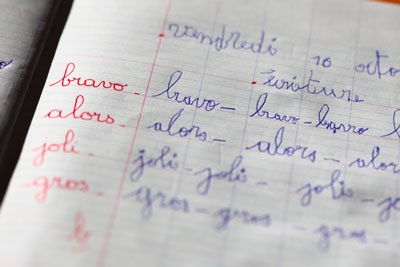 vendredi 10 octo
écriture
bravo - bravo - bravo - bravo b
alors - alors - alors - alor
joli - joli - joli - joli - jo
gros - gros - gros - gros -
b